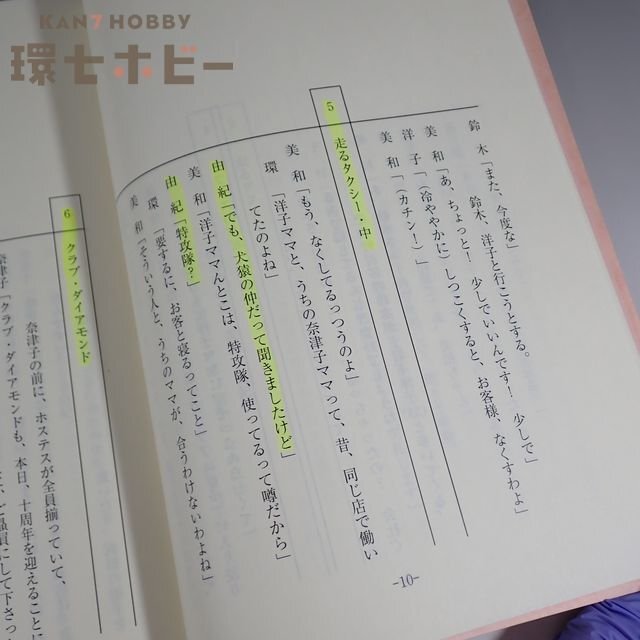 KAN7HOBBY
環七ホビー
鈴　木「また、今度な」
鈴木、洋子と行こうとする。
美　和「あ、ちょっと！　少しでいいんです！　少しで」
洋　子「（冷ややかに）しつこくすると、お客様、なくすわよ」
美　和「（カチン！）」
5　走るタクシー・中
美　和「もう、なくしてるっつうのよ」
環　「洋子ママと、うちの奈津子ママって、昔、同じ店で働い
てたのよね」
由　紀「でも、犬猿の仲だって聞きましたけど」
美　和「洋子ママんとこは、特攻隊、使ってるって噂だから」
由　紀「特攻隊？」
環　「要するに、お客と寝るってこと」
美　和「そういう人と、うちのママが、合うわけないわよね」
-10-
6　クラブ・ダイアモンド
奈津子の前に、ホステスが全員揃っていて、
奈津子「クラブ・ダイアモンドも、本日、十周年を迎えることに